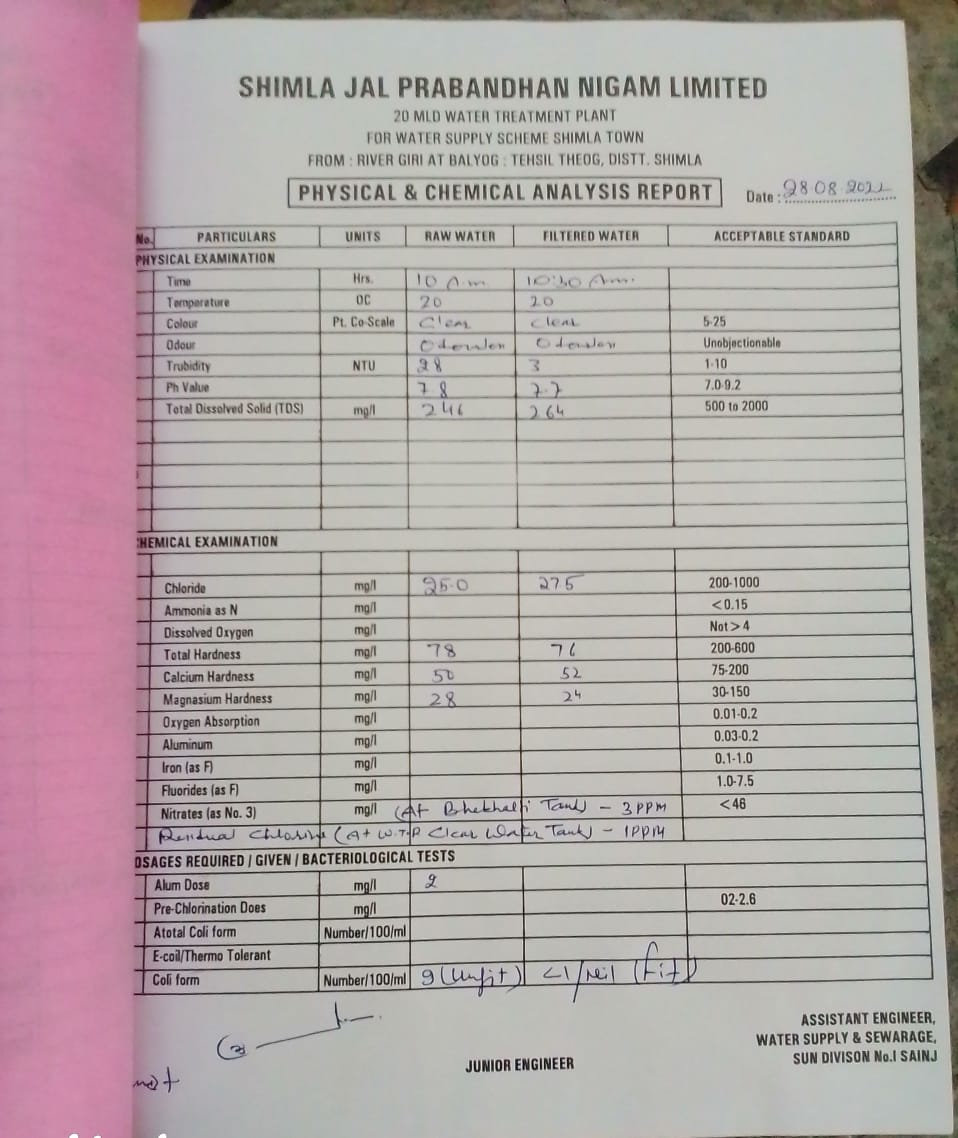 SHIMLA JAL PRABANDHAN NIGAM LIMITED
20 MLD WATER TREATMENT PLANT
FOR WATER SUPPLY SCHEME SHIMLA TOWN
FROM : RIVER GIRI AT BALYOG : TEHSIL THEOG, DISTT. SHIMLA
PHYSICAL & CHEMICAL ANALYSIS REPORT Date : 28.08.2022
No. PARTICULARS UNITS RAW WATER FILTERED WATER ACCEPTABLE STANDARD
PHYSICAL EXAMINATION
Time Hrs. 10 A.m. 10:30 Am.
Temperature OC 20 20
Colour Pt. Co-Scale Clear Clear 5-25
Odour Unobjectionable
Trubidity NTU 28 3 1-10
Ph Value 7.8 7.7 7.0-9.2
Total Dissolved Solid (TDS) mg/l 246 264 500 to 2000
HEMICAL EXAMINATION
Chloride mg/l 25.0 275 200-1000
Ammonia as N mg/l <0.15
Dissolved Oxygen mg/l Not > 4
Total Hardness mg/l 78 76 200-600
Calcium Hardness mg/l 50 52 75-200
Magnasium Hardness mg/l 28 24 30-150
Oxygen Absorption mg/l 0.01-0.2
Aluminum mg/l 0.03-0.2
Iron (as F) mg/l 0.1-1.0
Fluorides (as F) mg/l 1.0-7.5
Nitrates (as No. 3) mg/l (At Tank) - 3 PPM <46
Residual Chlorine (At W.T.P Clear Water Tank) - 1 PPM
OSAGES REQUIRED / GIVEN / BACTERIOLOGICAL TESTS
Alum Dose mg/l 2
Pre-Chlorination Does mg/l 02-2.6
Atotal Coli form Number/100/ml
E-coil/Thermo Tolerant
Coli form Number/100/ml 9 (Unfit) <1/Nil (fit)
ASSISTANT ENGINEER,
WATER SUPPLY & SEWARAGE,
JUNIOR ENGINEER SUN DIVISON No.I SAINJ